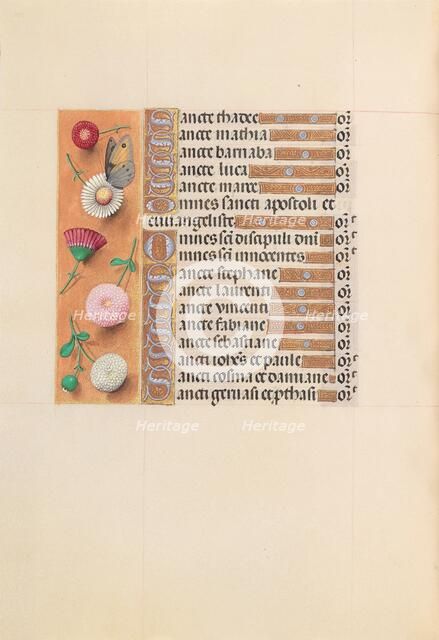 Sancte thadee or
Sancte mathia or
Sancte barnaba or
Sancte luca or
Sancte marce or
Omnes sancti apostoli et
evvangeliste or
Omnes sc̄i discipuli dn̄i or
Omnes sc̄i innocentes or
Sancte stephane or
Sancte laurenti or
Sancte vincenti or
Sancte fabiane or
Sancte sebastiane or
Sancti ioh̄es et paule or
Sancti cosma et damiane or
Sancti geruasi et ꝓthasi or
Heritage
Heritage
Heritage
Heritage
Heritage
Heritage